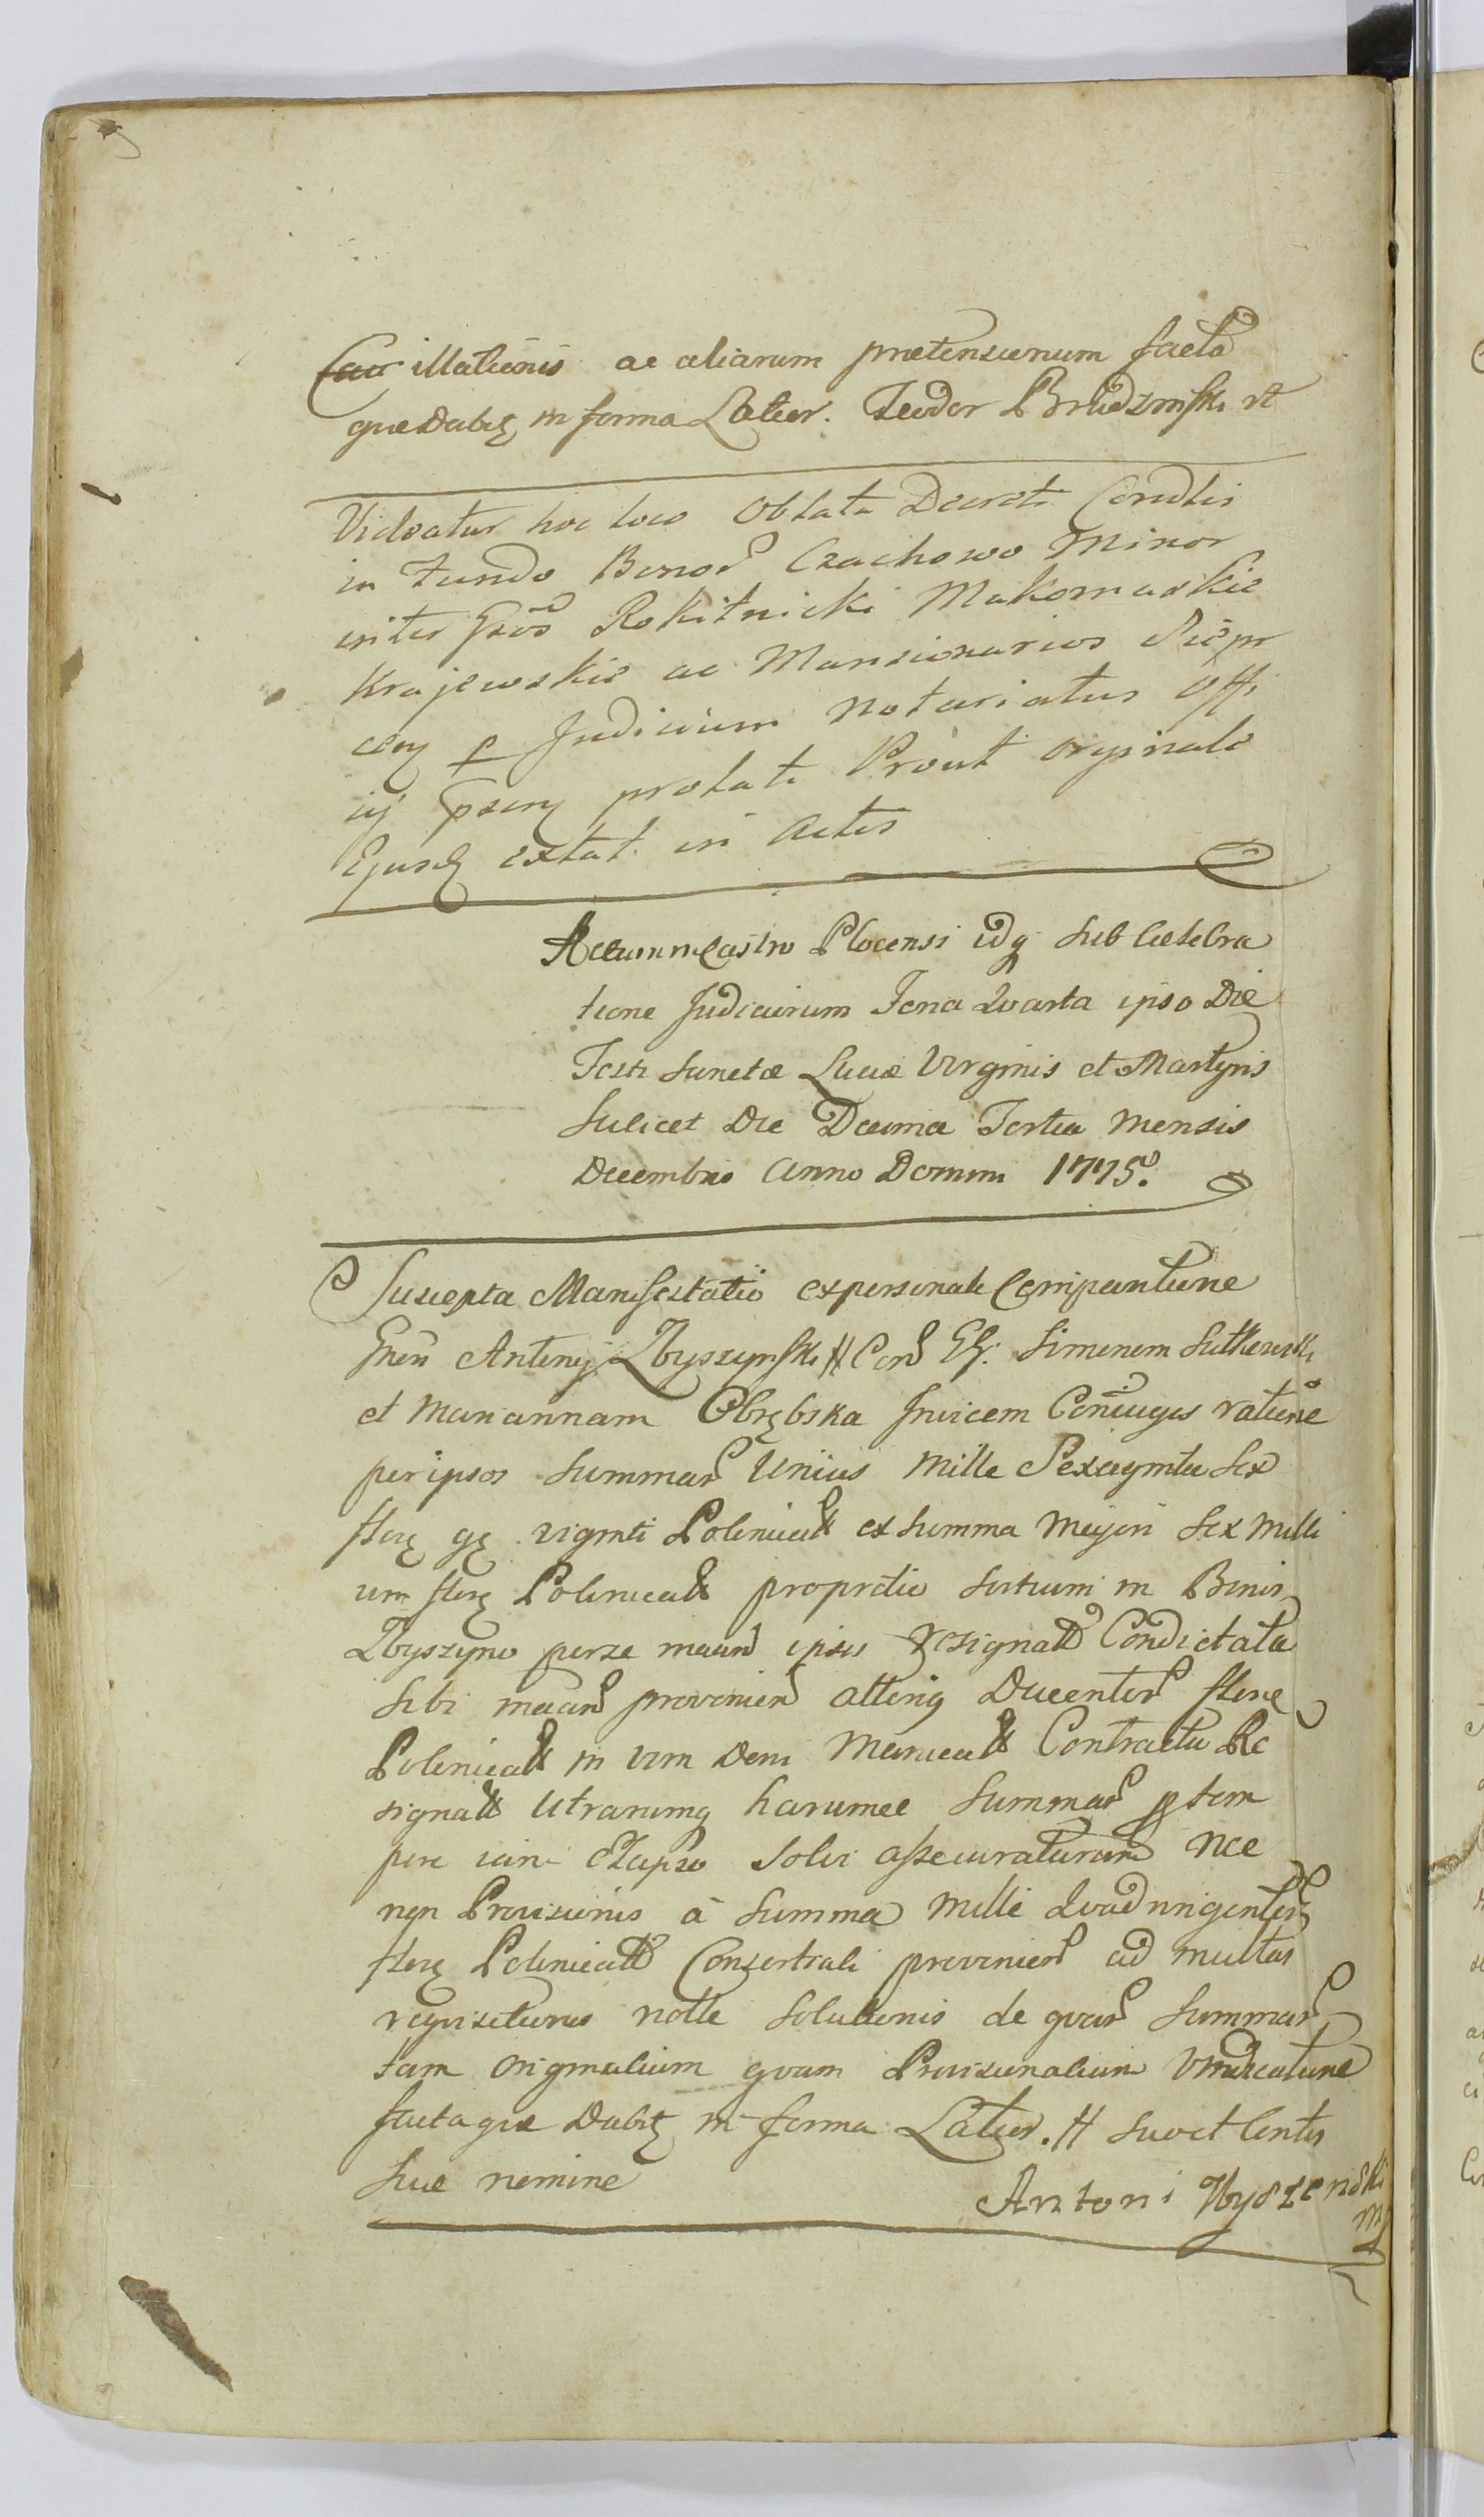 Cau illationis ac aliarum praetensionum facta
quae Dabitę in forma Latior. Teodor Brudzinski
Videatur hoc loco Oblata Decreti Condlis
in Fundo Bonor Czachowo Minor
inter Gsos Rokitnicki Makomaskie
Krajewskie ac Mansionarios
Judicium Notariatus Offi
cij prolati Prout Originale
Ejusd extat in Actis
Actum in Castro Plocensi idq sub Caelebra
tione Judiciorum Feria Quarta ipso Die
Festi Sanctae Luciae Virginis et Martyris
Scilicet Die Decima Tertia Mensis
Decembris Anno Domini 1775o.
Suscepta Manifestatio ex personali Comparitione
Gnsi Antonij Zbyszynski # Con GG: Simonem Sutkowski
et Mariannam Obrębska Invicem Coniuges ratione
per ipsos Summar Unius Mille Sexaginta Sex
florę gę viginti Polonical ex Summa Majori Sex Milli
um florę Polonical pro pretio Sortium in Bonis
Zbyszyno per se ipsis resignat Condictata
Sibi provenien alteriq Ducentor flore
Polonical in vim Doni Contractu Re
signat Utrarumq harumce Summar ptem
pore iam Elapso Solvi assecuraturum nec
non Provisionis à Summa Mille Quadringentorę
florę Polonicali provenien ad multas
requisitiones nolle Solutionis de quar Summar
tam Originalium quam Provisionalium Vindicatione
facta quae Dabitę in forma Latior. # suo et Contis
Suae nomine
Antoni Zbyszenski
mp